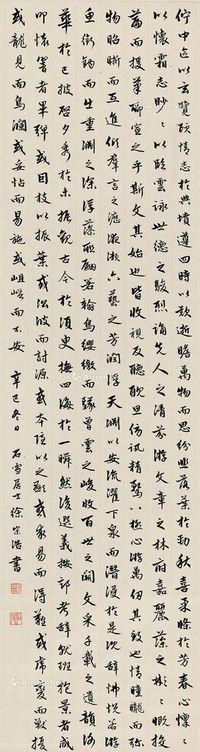 佇中區以玄覽頤情志於典墳遵四時以歎逝瞻萬物而思紛悲落葉於勁秋喜柔條於芳春心懍々
以懷霜志眇々以臨雲詠世德之駿烈誦先人之清芬遊文章之林府嘉麗藻之彬々慨投
篇而援筆聊宣之乎斯文其始也皆收視反聽耽思傍訊精騖八極心遊萬仞其致也情曈曨而彌鮮
物昭晰而互進傾群言之瀝液漱六藝之芳潤浮天淵以安流濯下泉而潛浸於是沈辭怫悅若游
魚銜鉤而出重淵之深浮藻聯翩若翰鳥纓繳而墜曾雲之峻收百世之闕文采千載之遺韻謝朝
華於已披啟夕秀於未振觀古今於須臾撫四海於一瞬然後選義按部考辭就班抱景者咸
叩懷響者畢彈或因枝以振葉或沿波而討源或本隱以之顯或求易而得難或虎變而獸擾
或龍見而鳥瀾或妥帖而易施或岨峿而不安 辛巳冬日 石雪居士徐宗浩書